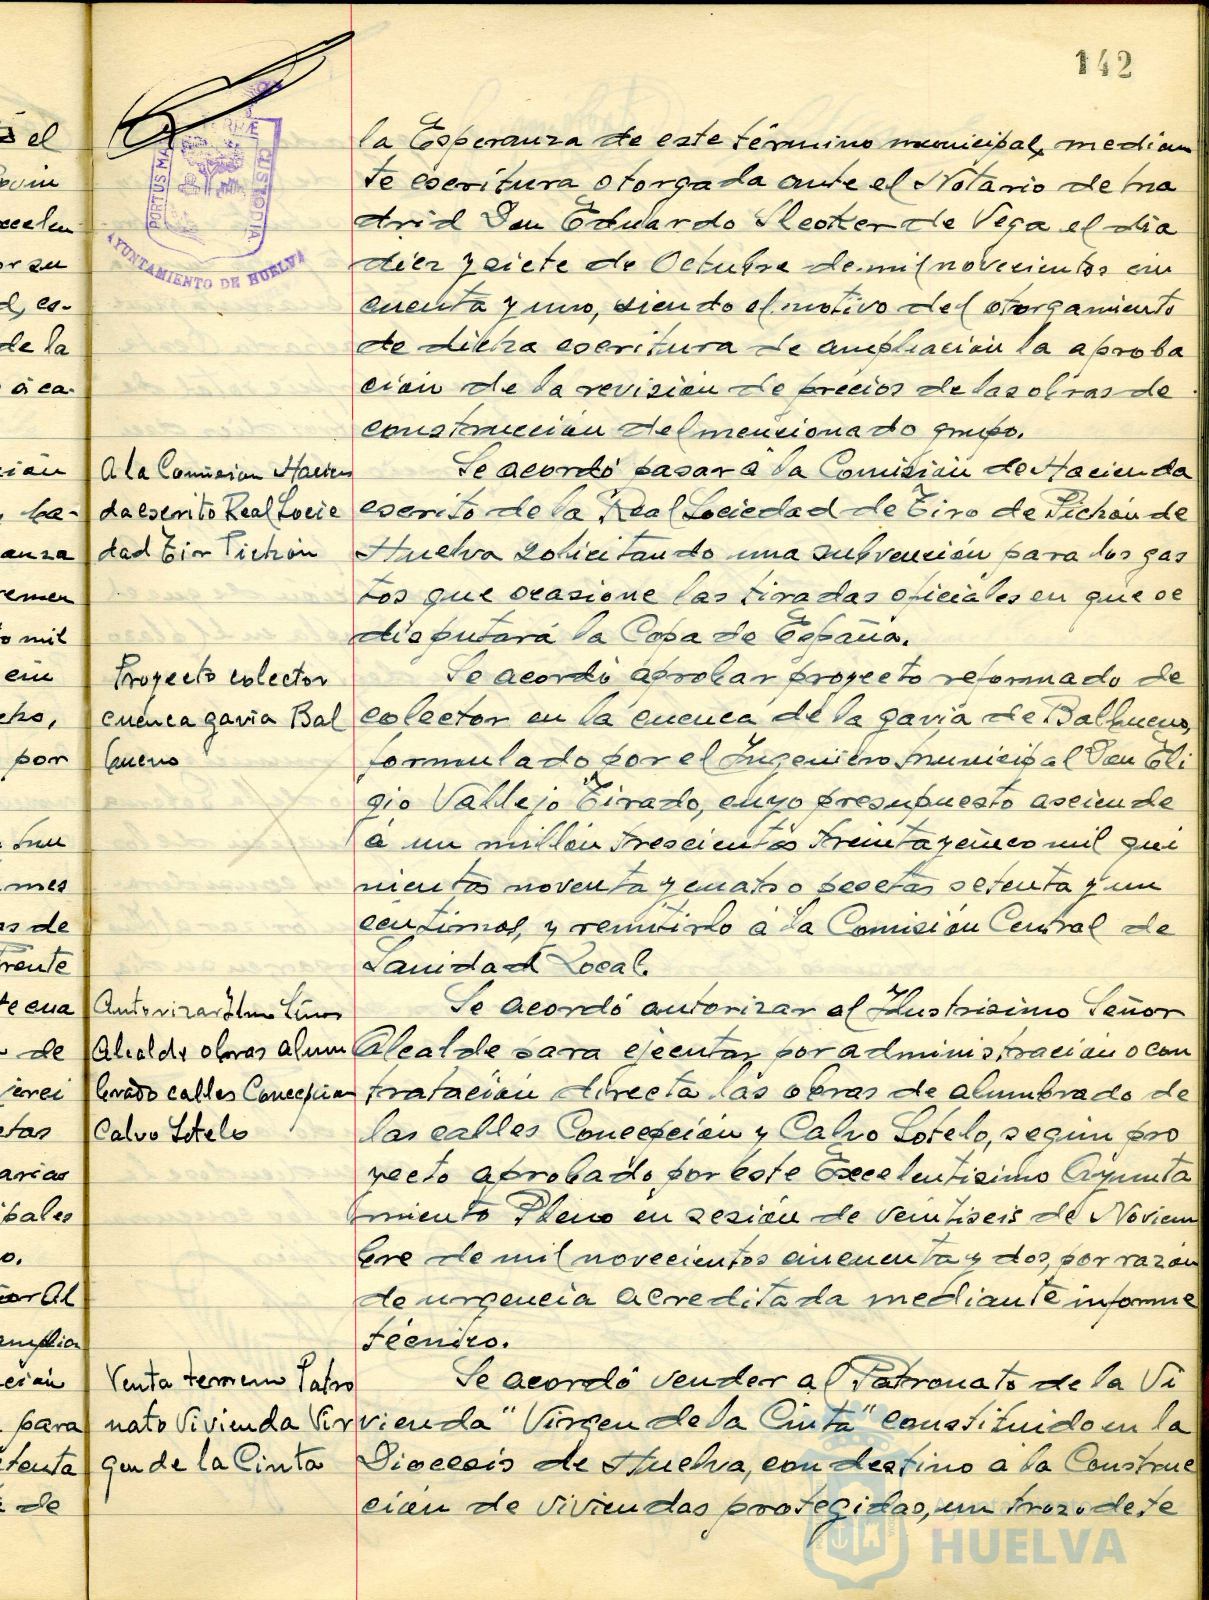 142
PORTUS MARIS ET TERRAE CUSTODIA
AYUNTAMIENTO DE HUELVA
la Esperanza de este término municipal, median
te escritura otorgada ante el Notario de Ma
drid Don Eduardo
de Vega el dia
diez y siete de Octubre de mil novecientos cin
cuenta y uno, siendo el motivo del otorgamiento
de dicha escritura de ampliación la aproba
ción de la revisión de precios de las obras de
construcción del mencionado grupo.
A la Comision Hacien
da escrito Real Socie
dad Tiro Pichón
Se acordó pasar á la Comisión de Hacienda
escrito de la Real Sociedad de Tiro de Pichón de
Huelva solicitando una subvención para los gas
tos que ocasione las tiradas oficiales en que se
disputará la Copa de España.
Proyecto colector
cuenca gavia Bal
bueno
Se acordó aprobar proyecto reformado de
colector en la cuenca de la gavia de Balbueno,
formulado por el Ingeniero municipal Don Eli
gio Vallejo Tirado, cuyo presupuesto asciende
á un millón trescientas treinta y cinco mil qui
nientas noventa y cuatro pesetas setenta y un
centimos, y remitirlo á la Comisión Central de
Sanidad Local.
Autorizar Ilmo Señor
Alcalde obras alum
brado calles Concepcion
Calvo Sotelo
Se acordó autorizar al Ilustrisimo Señor
Alcalde para ejecutar por administración o con
tratación directa las obras de alumbrado de
las calles Concepción y Calvo Sotelo, según pro
yecto aprobado por este Excelentisimo Ayunta
miento Pleno en sesión de veintiseis de Noviem
bre de mil novecientos cincuenta y dos, por razón
de urgencia acreditada mediante informe
técnico.
Venta terreno Patro
nato Vivienda Vir
gen de la Cinta
Se acordó vender al Patronato de la Vi
vienda "Virgen de la Cinta" constituido en la
Diocesis de Huelva, con destino á la Construc
ción de viviendas protegidas, un trozo de te
HUELVA